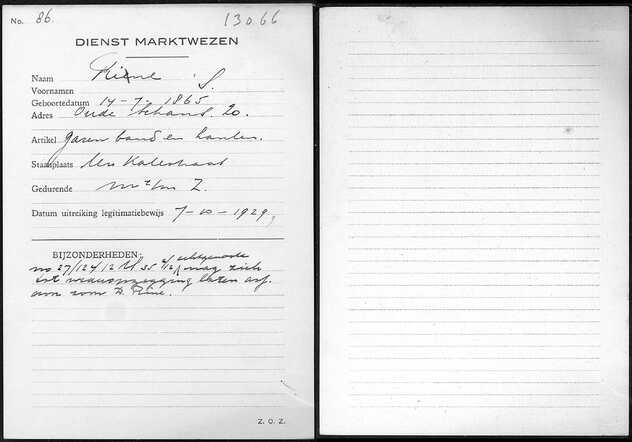 No. 86. 13066
DIENST MARKTWEZEN
Naam S.
Voornamen
Geboortedatum 14-7-1865
Adres Oude Schans. 20.
Artikel garen band en kanten.
Standplaats Uilenburgerstraat
Gedurende m t/m Z.
Datum uitreiking legitimatiebewijs 7-10-1929
BIJZONDERHEDEN: echtgenoote
no 27/124/12 M 35 mag zich
tot wederopzegging laten
door zoon D.
Z. O. Z.